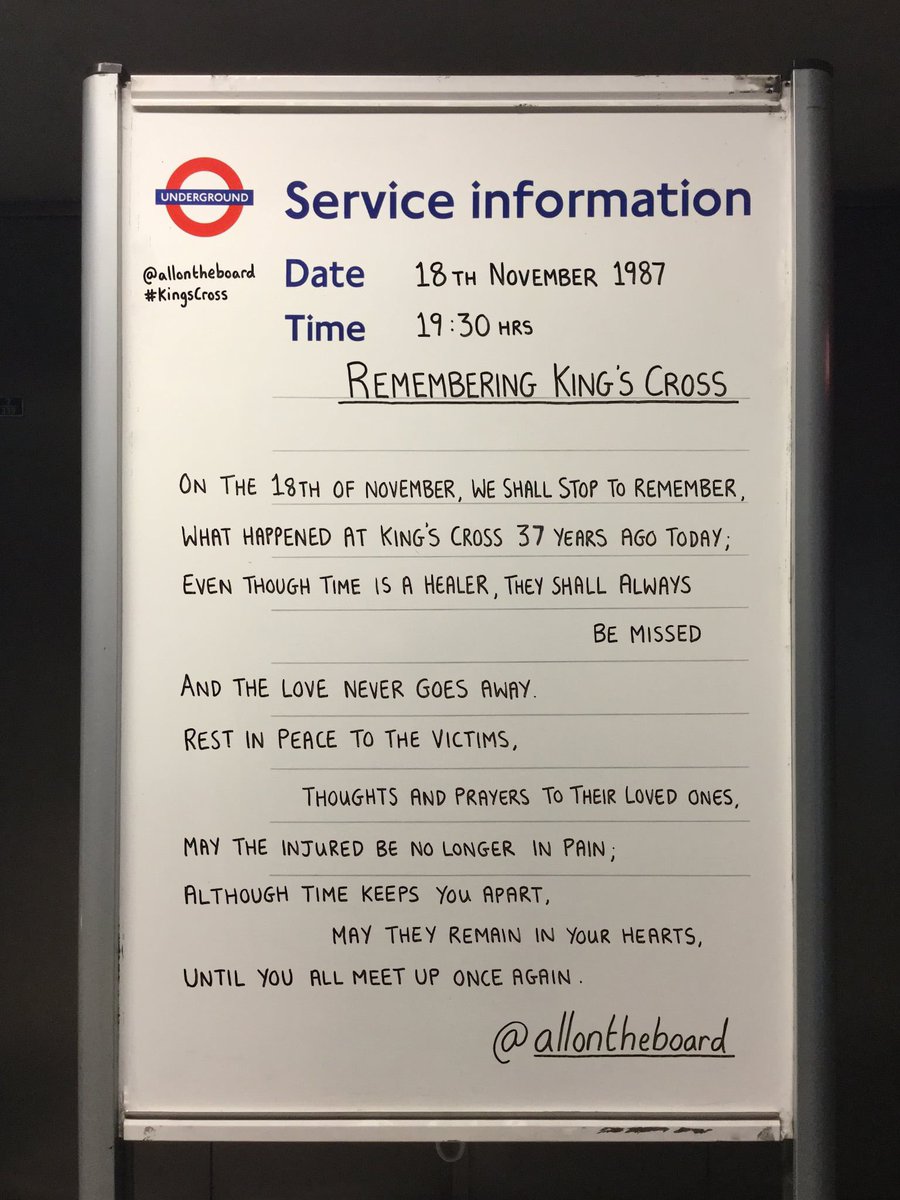 UNDERGROUND
Service information
@allontheboard
#KingsCross
Date 18TH NOVEMBER 1987
Time 19:30 HRS
REMEMBERING KING'S CROSS
ON THE 18TH OF NOVEMBER, WE SHALL STOP TO REMEMBER,
WHAT HAPPENED AT KING'S CROSS 37 YEARS AGO TODAY;
EVEN THOUGH TIME IS A HEALER, THEY SHALL ALWAYS
BE MISSED
AND THE LOVE NEVER GOES AWAY.
REST IN PEACE TO THE VICTIMS,
THOUGHTS AND PRAYERS TO THEIR LOVED ONES,
MAY THE INJURED BE NO LONGER IN PAIN;
ALTHOUGH TIME KEEPS YOU APART,
MAY THEY REMAIN IN YOUR HEARTS,
UNTIL YOU ALL MEET UP ONCE AGAIN.
@allontheboard